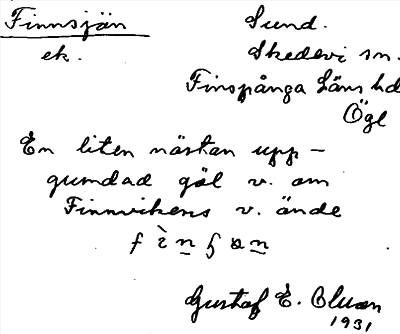 Finnsjän Sund.
ek. Skedevi sn.
Finspånga Läns hd
Ögl
En liten nästan upp-
gumdad göl v. om
Finnvikens v. ände
Gustaf E. Oluan
1931